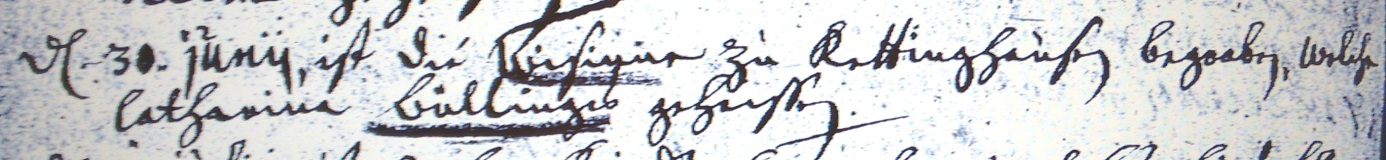 d. 30. Junij, ist die Visigine zu Kettinghausen begraben, welche
Catharina Büllinges geheissen.